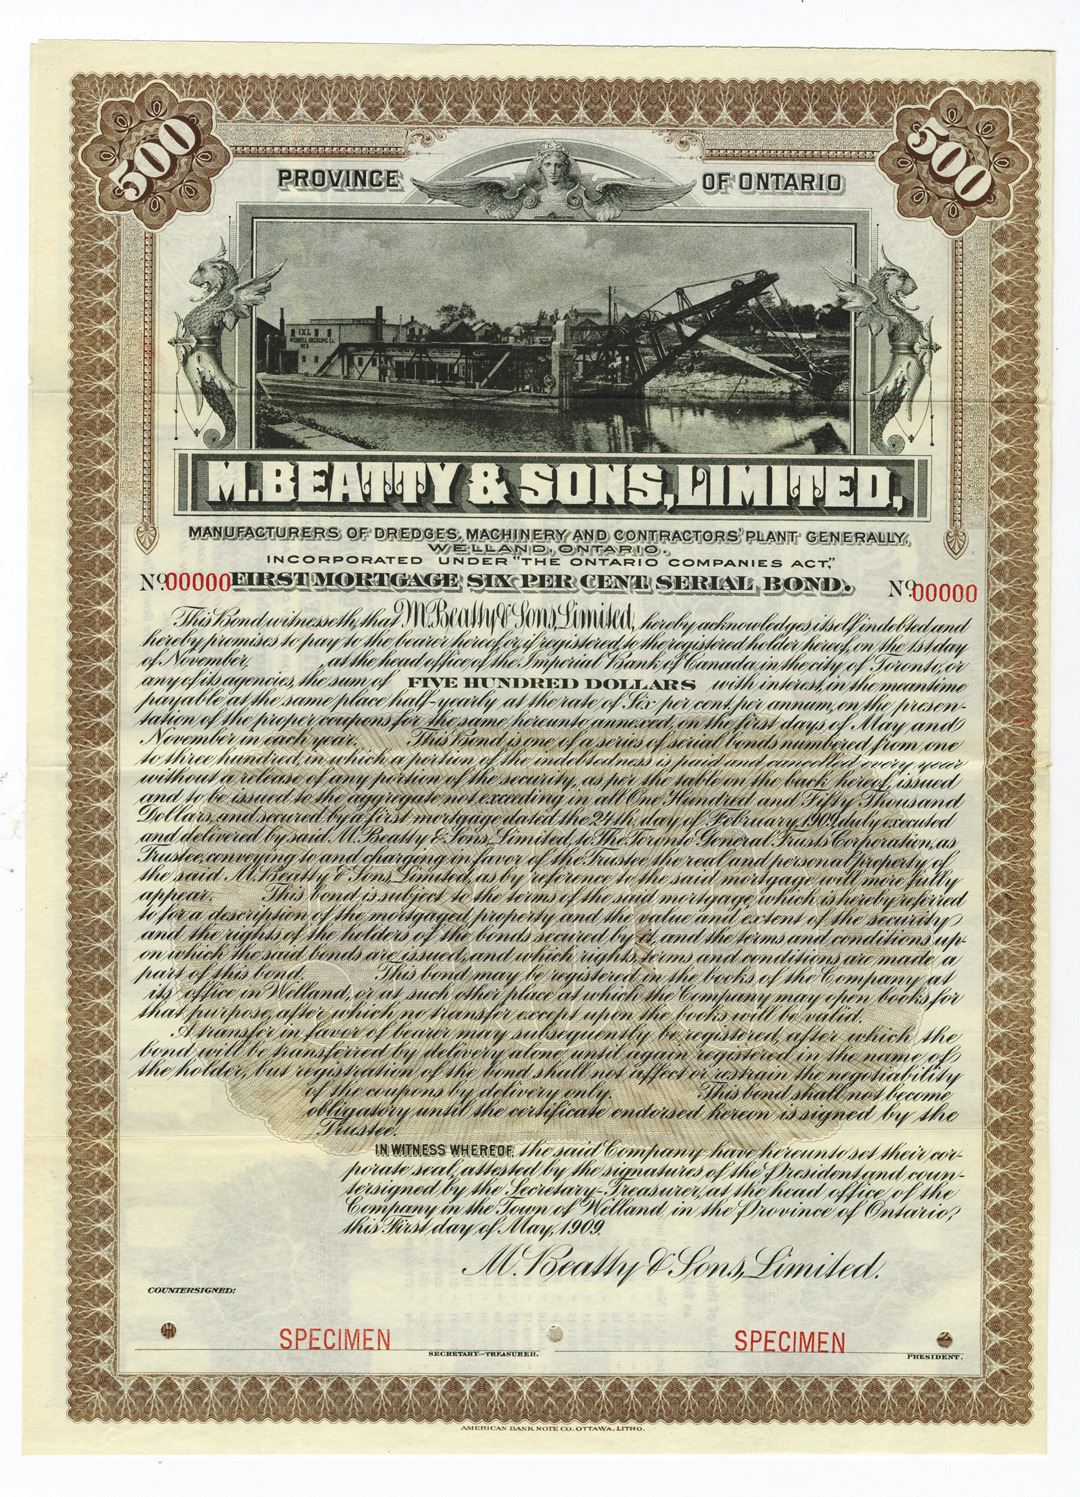 500
500
PROVINCE OF ONTARIO
IXL
M. BEATTY & SONS, LIMITED,
MANUFACTURERS OF DREDGES, MACHINERY AND CONTRACTORS' PLANT GENERALLY,
WELLAND, ONTARIO.
INCORPORATED UNDER "THE ONTARIO COMPANIES ACT,"
No. 00000 FIRST MORTGAGE SIX PER CENT SERIAL BOND. No. 00000
This Bond witnesseth, that M. Beatty & Sons, Limited, hereby acknowledges itself indebted and
hereby promises to pay to the bearer hereof, or, if registered, to the registered holder hereof, on the 1st day
of November, at the head office of the Imperial Bank of Canada, in the city of Toronto, or
any of its agencies, the sum of FIVE HUNDRED DOLLARS with interest, in the meantime
payable at the same place half-yearly at the rate of Six per cent, per annum, on the presen-
tation of the proper coupons for the same hereunto annexed, on the first days of May and
November in each year. This Bond is one of a series of serial bonds numbered from one
to three hundred, in which a portion of the indebtedness is paid and cancelled every year
without a release of any portion of the security, as per the table on the back hereof, issued
and to be issued to the aggregate not exceeding in all One Hundred and Fifty Thousand
Dollars, and secured by a first mortgage dated the 24th, day of February, 1909, duly executed
and delivered by said M. Beatty & Sons, Limited, to The Toronto General Trusts Corporation, as
Trustee, conveying to and charging in favor of the Trustee the real and personal property of
the said M. Beatty & Sons, Limited, as by reference to the said mortgage will more fully
appear. This bond is subject to the terms of the said mortgage, which is hereby referred
to for a description of the mortgaged property and the value and extent of the security
and the rights of the holders of the bonds secured by it, and the terms and conditions up-
on which the said bonds are issued, and which rights, terms and conditions are made a
part of this bond. This bond may be registered in the books of the Company at
its office in Welland, or at such other place at which the Company may open books for
that purpose, after which no transfer except upon the books will be valid.
A transfer in favor of bearer may subsequently be registered, after which the
bond will be transferred by delivery alone, until again registered in the name of
the holder, but registration of the bond shall not affect or restrain the negotiability
of the coupons by delivery only. This bond shall not become
obligatory until the certificate endorsed hereon is signed by the
Trustee.
IN WITNESS WHEREOF, the said Company have hereunto set their cor-
porate seal, attested by the signatures of the President and coun-
tersigned by the Secretary-Treasurer, at the head office of the
Company in the Town of Welland in the Province of Ontario,
this First day of May, 1909.
M. Beatty & Sons, Limited.
COUNTERSIGNED:
SPECIMEN SPECIMEN
SECRETARY-TREASURER. PRESIDENT.
AMERICAN BANK NOTE CO. OTTAWA. LITHO.